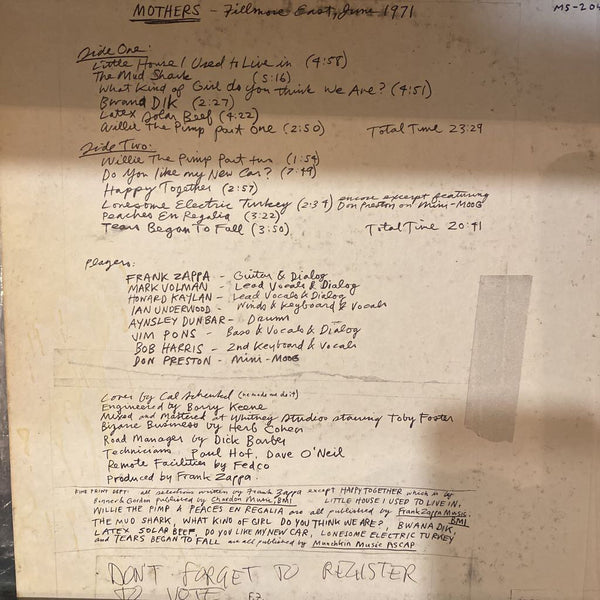 MOTHERS - Fillmore East, June 1971
MS-204
Side One:
Little House I Used to Live in (4:58)
The Mud Shark (5:16)
What Kind of Girl do you think we Are? (4:51)
Bwana Dik (2:27)
Latex Solar Beef (4:22)
Willie The Pimp part one (2:50) Total Time 23:29
Side Two:
Willie The Pimp Part two (1:54)
Do You like my New Car? (7:49)
Happy Together (2:57)
Lonesome Electric Turkey (2:34) encore excerpt featuring
Don Preston on Mini-MOOG
Peaches En Regalia (3:22)
Tears Began To Fall (3:50) Total Time 20:41
Players:
FRANK ZAPPA - Guitar & Dialog
MARK VOLMAN - Lead Vocals & Dialog
HOWARD KAYLAN - Lead Vocals & Dialog
IAN UNDERWOOD - Winds & Keyboard & Vocals
AYNSLEY DUNBAR - Drums
JIM PONS - Bass & Vocals & Dialog
BOB HARRIS - 2nd Keyboard & Vocals
DON PRESTON - Mini-MOOG
Cover by Cal Schenkel (he made me do it)
Engineered by Barry Keene
Mixed and Mastered at Whitney Studios starring Toby Foster
Bizarre Business by Herb Cohen
Road Manager by Dick Barber
Technicians Paul Hof, Dave O'Neil
Remote Facilities by Fedco
Produced by Frank Zappa
FINE PRINT DEPT: all selections written by Frank Zappa except HAPPY TOGETHER which is by
Bonner & Gordon published by Chardon Music, BMI LITTLE HOUSE I USED TO LIVE IN,
WILLIE THE PIMP & PEACES EN REGALIA are all published by Frank Zappa Music, BMI
THE MUD SHARK, WHAT KIND OF GIRL DO YOU THINK WE ARE?, BWANA DIK
LATEX SOLAR BEEF, DO YOU LIKE MY NEW CAR, LONESOME ELECTRIC TURKEY
and TEARS BEGAN TO FALL are all published by Munchkin Music ASCAP
DON'T FORGET TO REGISTER
TO VOTE F.Z.